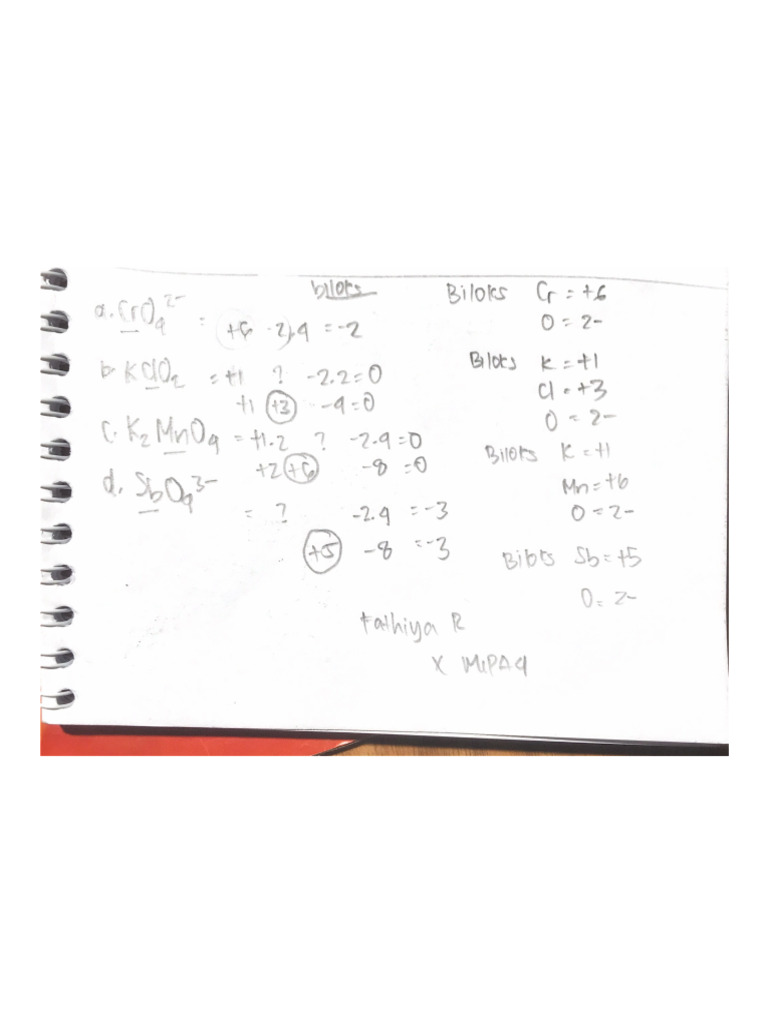 biloks
a. CrO4 2- = +6 -2.4 = -2
b. KClO2 = +1 ? -2.2=0
+1 +3 -4=0
C. K2MnO4 = +1.2 ? -2.4=0
+2 +6 -8=0
d. SbO4 3-
= ? -2.4 = -3
+5 -8 = -3
Biloks Cr = +6
O = 2-
Biloks K = +1
Cl = +3
O = 2-
Biloks K = +1
Mn = +6
O = 2-
Biloks Sb = +5
O = 2-
Fathiya R
X MIPA 4